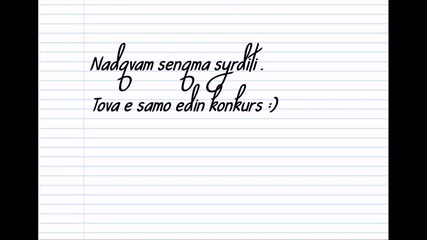 Nadqvam senqma syrditi.
Tova e samo edin konkurs :)